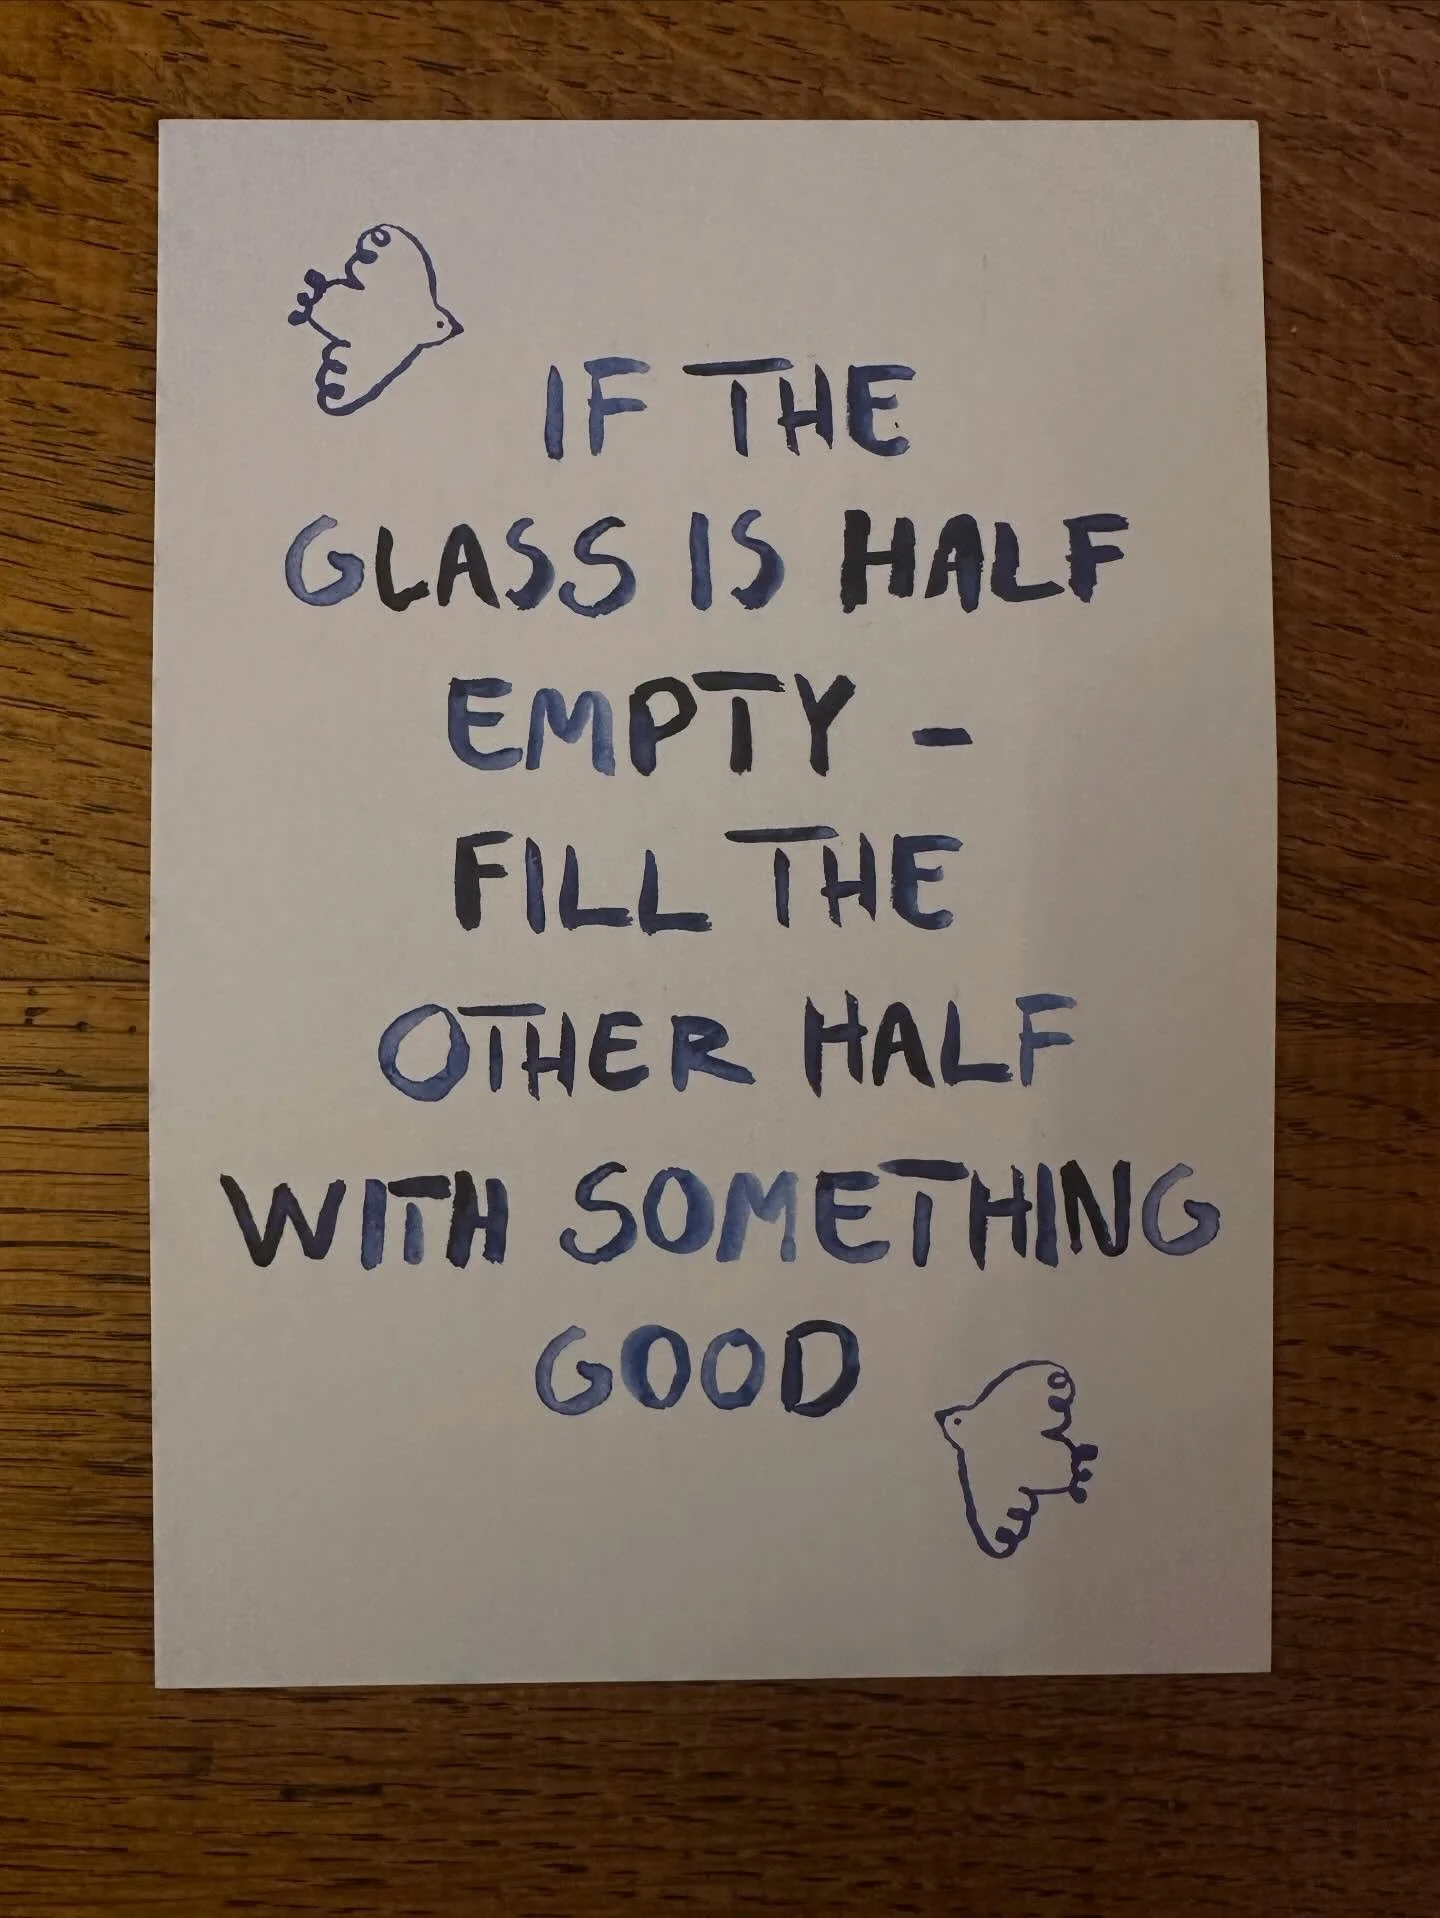 IF THE
GLASS IS HALF
EMPTY -
FILL THE
OTHER HALF
WITH SOMETHING
GOOD